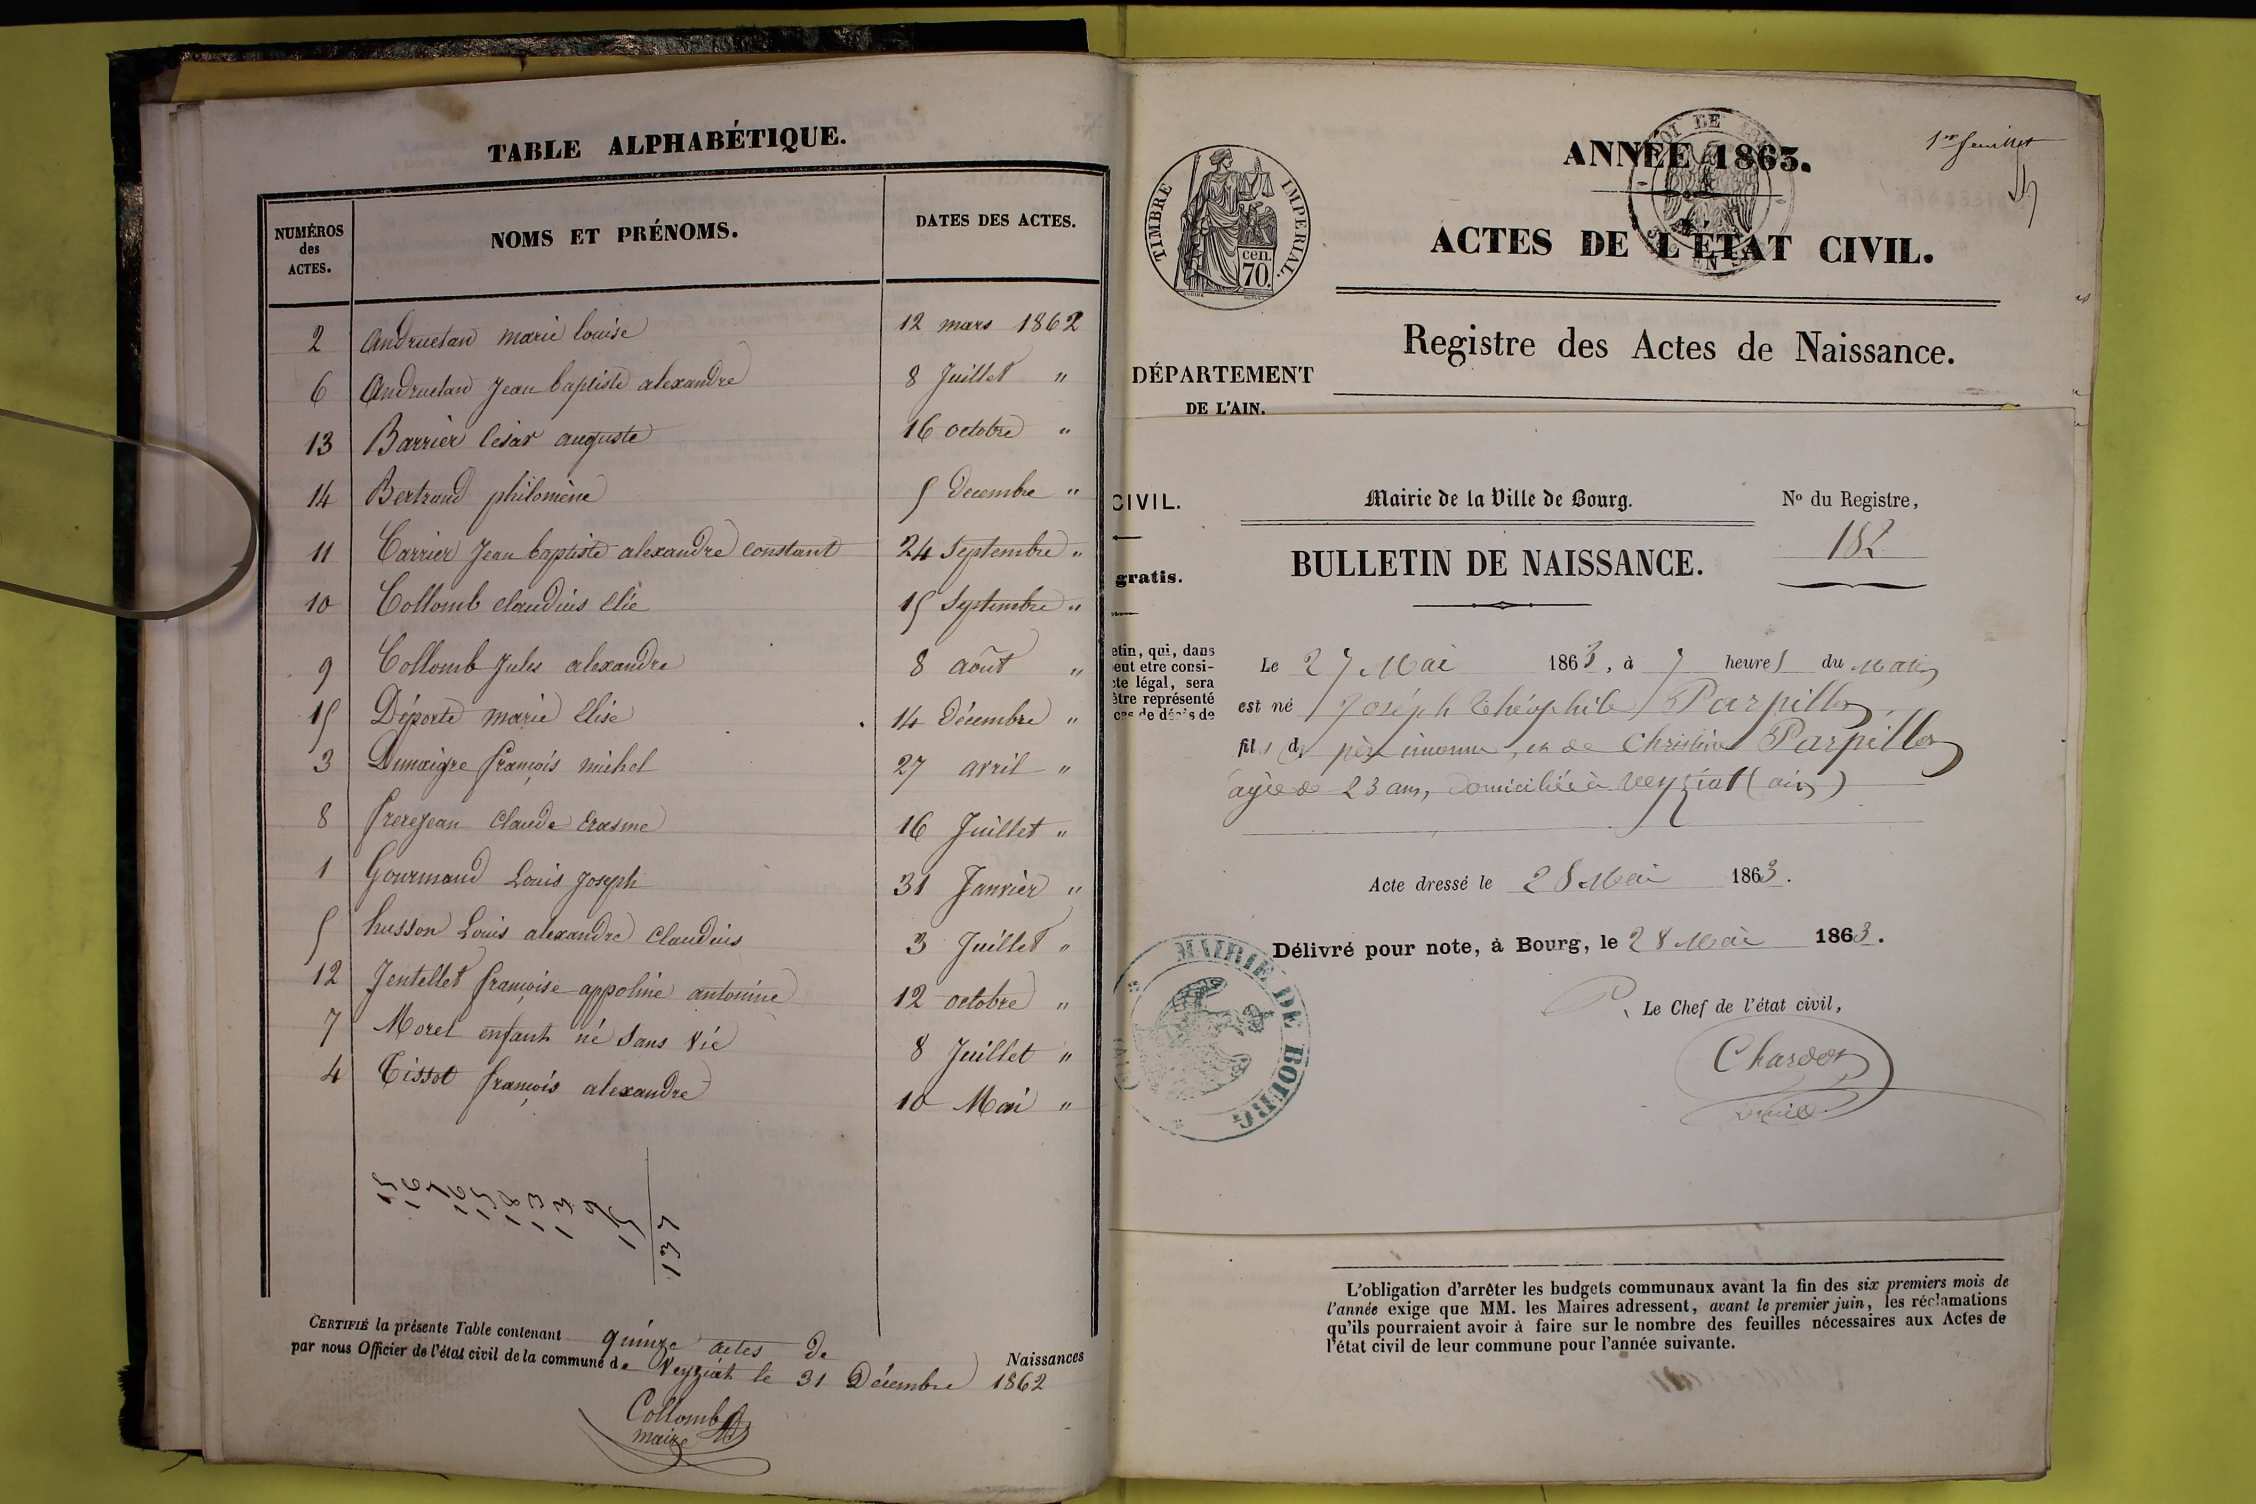 TABLE ALPHABÉTIQUE.
NUMÉROS des ACTES.
NOMS ET PRÉNOMS.
DATES DES ACTES.
2 Andruetan marie louise 12 mars 1862
6 Andruetan Jean baptiste alexandre 8 Juillet "
13 Barrier César auguste 16 octobre "
14 Bertrand philomène 5 Decembre "
11 Carrier Jean baptiste alexandre constant 24 Septembre "
10 Collomb claudius Elie 15 Septembre "
9 Collomb Jules alexandre 8 août "
15 Déporte marie Elise 14 Décembre "
3 Dumaigre françois michel 27 avril "
8 frerejean Claude Erasme 16 Juillet "
1 Gourmand Louis Joseph 31 Janvier "
5 husson Louis alexandre Claudius 3 Juillet "
12 Jentellet françoise appoline antonine 12 octobre "
7 Morel enfant né Sans Vie 8 Juillet "
4 Tissot françois alexandre 10 Mai "
137
CERTIFIÉ la présente Table contenant quinze actes de Naissances
par nous Officier de l'état civil de la commune de Veyziat le 31 Décembre 1862
Collomb
maire
1er feuillet
ANNÉE 1863.
ACTES DE L'ÉTAT CIVIL.
TIMBRE IMPERIAL.
cen. 70.
Registre des Actes de Naissance.
DÉPARTEMENT
DE L'AIN.
CIVIL.
gratis.
etin, qui, dans
eut etre consi-
te légal, sera
être représenté
Mairie de la Ville de Bourg.
No du Registre,
182
BULLETIN DE NAISSANCE.
Le 27 Mai 1863, à 7 heures du Matin
est né Joséph Théophile Parpillon
fils de père inconnu, et de Christine Parpillon
âgée de 23 ans, domiciliée à Veyziat (ain)
Acte dressé le 28 Mai 1863.
Délivré pour note, à Bourg, le 28 Mai 1863.
P. Le Chef de l'état civil,
Chardon
MAIRIE DE BOURG
(AIN)
L'obligation d'arrêter les budgets communaux avant la fin des six premiers mois de
l'année exige que MM. les Maires adressent, avant le premier juin, les réclamations
qu'ils pourraient avoir à faire sur le nombre des feuilles nécessaires aux Actes de
l'état civil de leur commune pour l'année suivante.